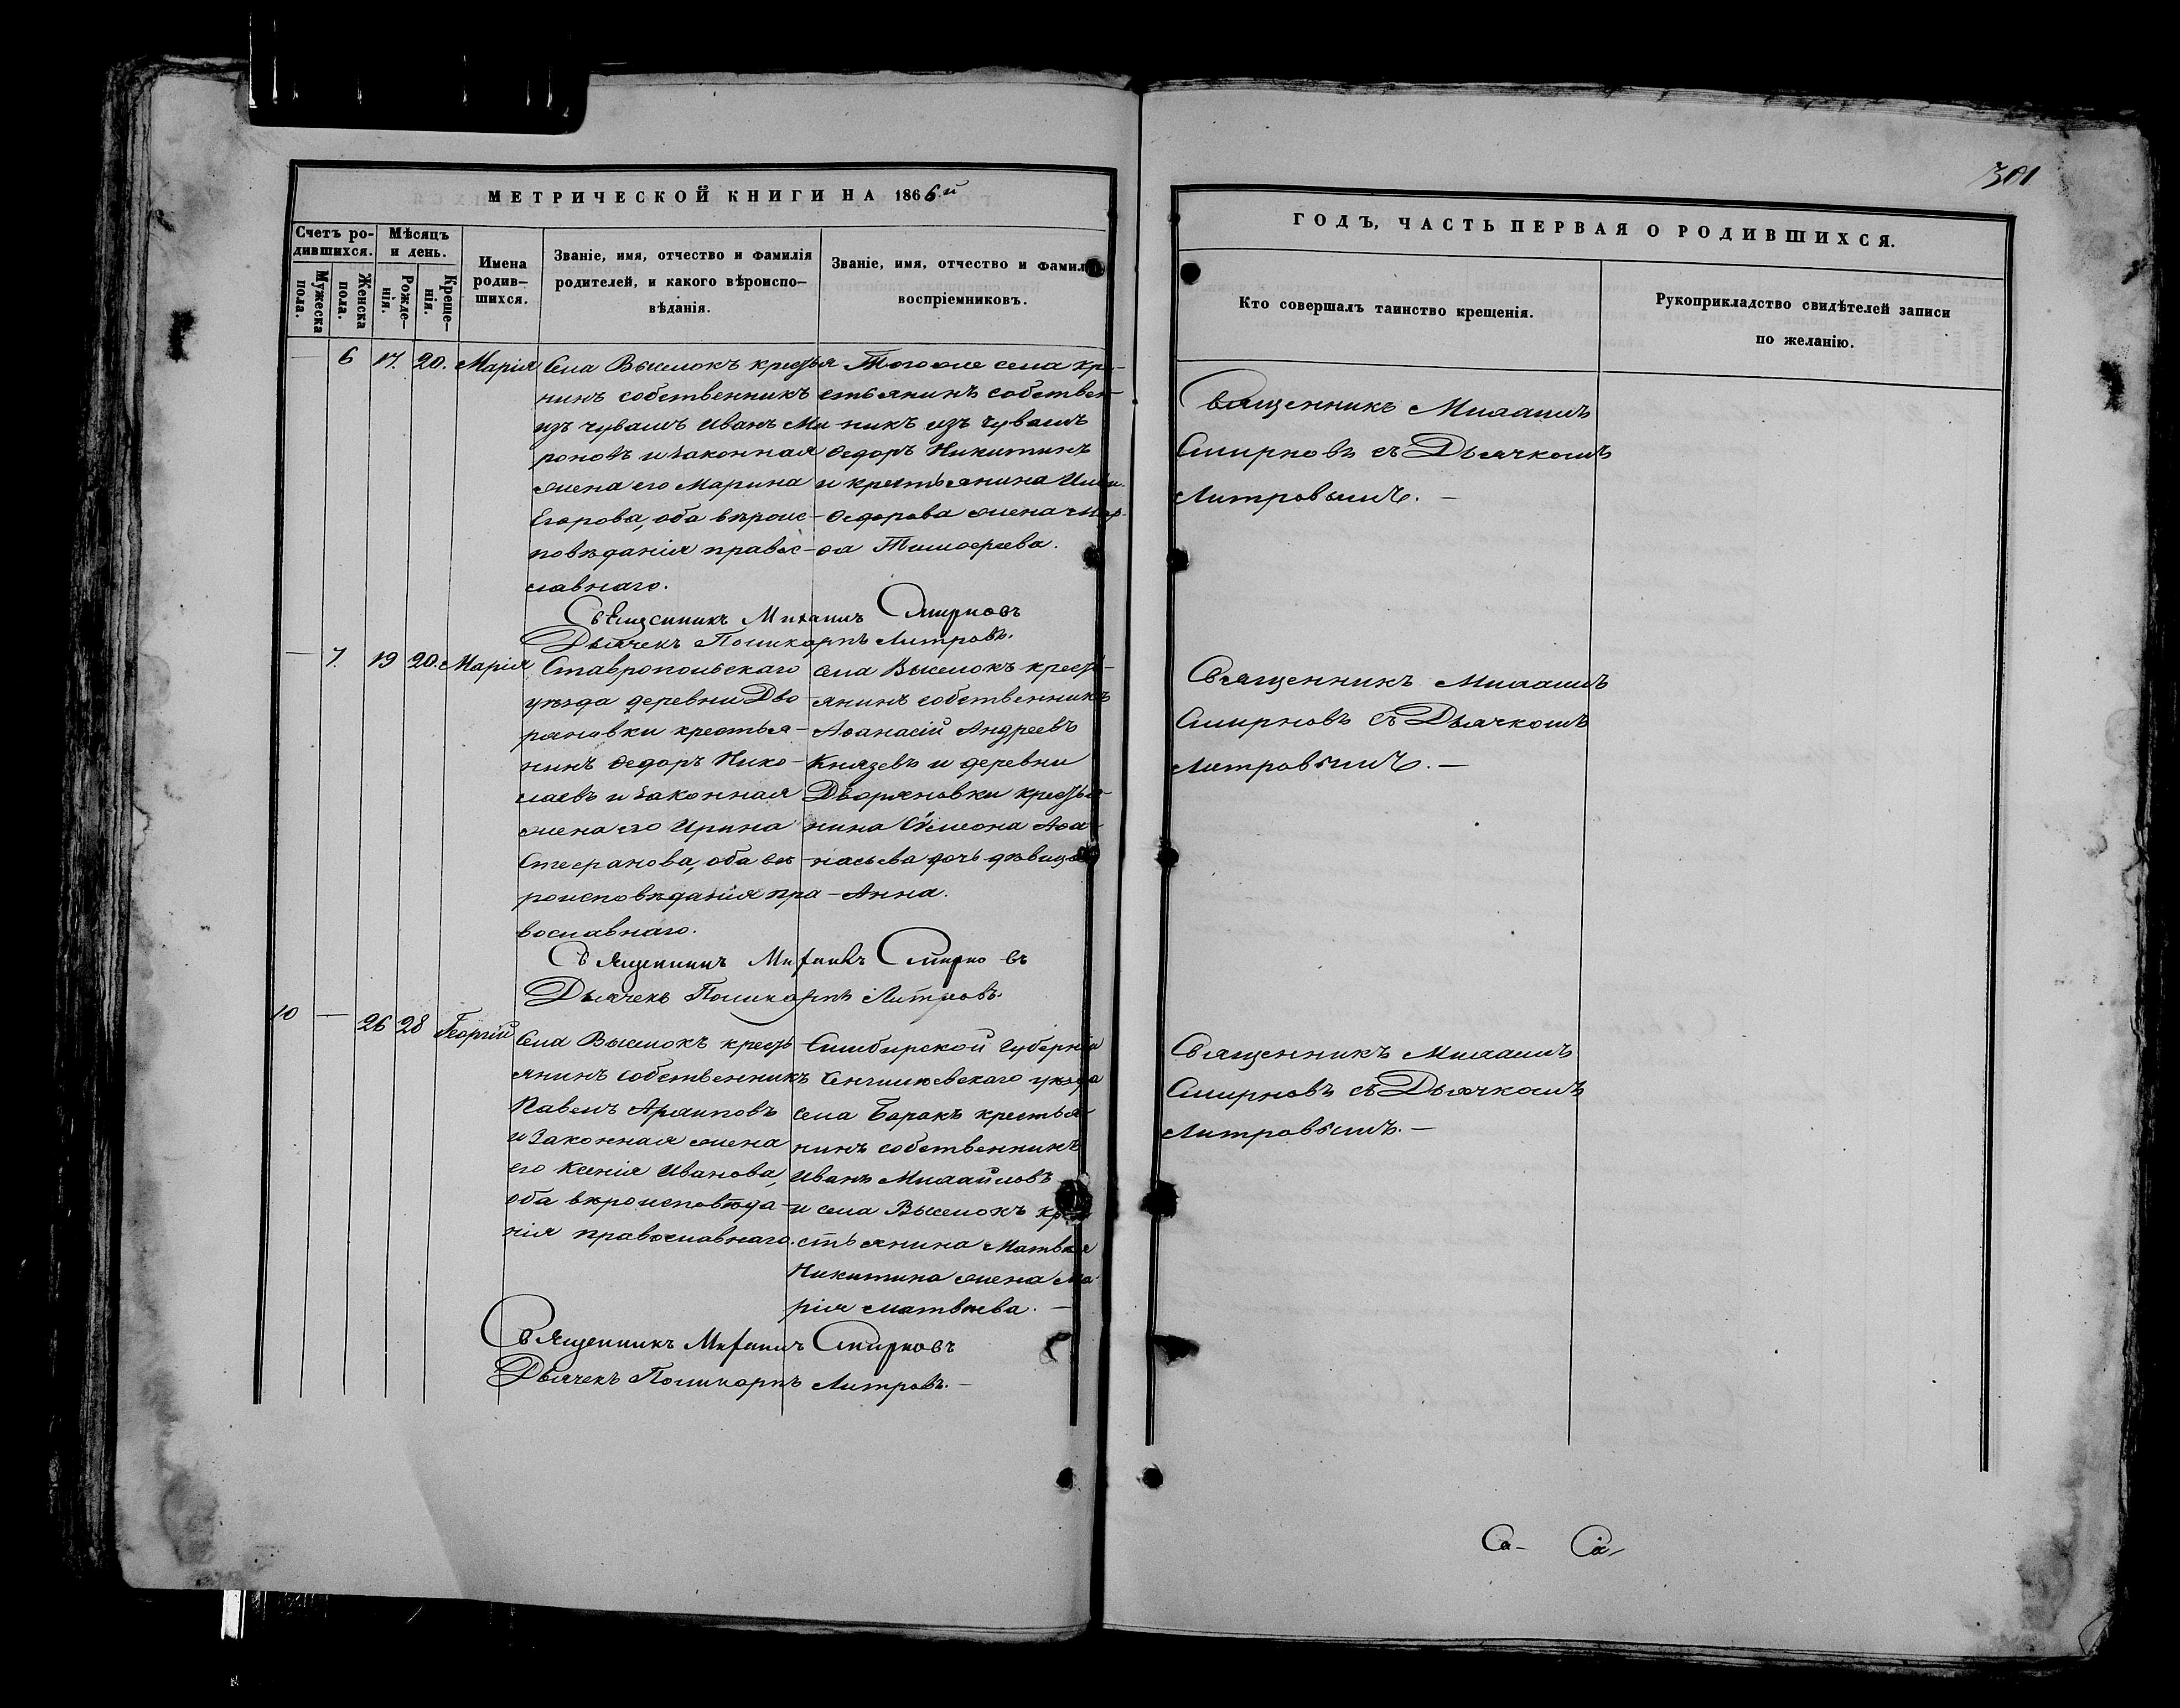 МЕТРИЧЕСКОЙ КНИГИ НА 1866й
Счетъ ро-
дившихся.
Мѣсяцъ
и день.
Мужеска
пола.
Женска
пола.
Рожде-
нія.
Креще-
нія.
Имена
родив-
шихся.
Званіе, имя, отчество и фамилія
родителей, и какого вѣроиспо-
вѣданія.
Званіе, имя, отчество и фамил
воспріемниковъ.
— 6 17. 20. Марія
Села Выселокъ кресть
нинъ собственникъ
изъ чувашъ Иванъ Ми
роновъ и законная
жена его Марина
Егорова, оба вѣроис-
повѣданія правос-
славнаго.
Тогоже села кре-
стьянинъ собствен-
никъ изъ чувашъ
Ѳедоръ Никитинъ
и крестьянина
Ѳедорова жена
Тимоѳеева.
Священникъ Михаилъ Смирновъ
Дьячекъ Поликарпъ Литровъ.
— 7. 19 20. Марія
Ставропольскаго
уѣзда деревни Дво-
ряновки крестья-
нинъ Ѳедоръ Нико-
лаевъ и законная
жена его Ирина
Стефанова, оба вѣ-
роисповѣданія пра-
вославнаго.
села Выселокъ кресть-
янинъ собственникъ
Аѳанасій Андреевъ
Князевъ и деревни
Дворяновки крестья-
нина Сѵмеона Аѳа-
насьева дочь дѣвица
Анна.
Священникъ Михаилъ Смирновъ
Дьячекъ Поликарпъ Литровъ.
10 — 26 28 Георгій
Села Выселокъ кресть
янинъ собственникъ
Павелъ Архиповъ
и законная жена
его Ксенія Иванова,
оба вѣроисповѣда-
нія православнаго.
Симбирской Губерніи
Сенгилѣевскаго уѣзда
села Боракъ крестья-
нинъ собственникъ
Иванъ Михайловъ
и села Выселокъ кре-
стьянина Матвѣя
Никитина жена Ма-
рія Матвѣева. —
Священникъ Михаилъ Смирновъ
Дьячекъ Поликарпъ Литровъ. —
301
ГОДЪ, ЧАСТЬ ПЕРВАЯ О РОДИВШИХСЯ.
Кто совершалъ таинство крещенія.
Рукоприкладство свидѣтелей записи
по желанію.
Священникъ Михаилъ
Смирновъ съ Дьячкомъ
Литровымъ. —
Священникъ Михаилъ
Смирновъ съ Дьячкомъ
Литровымъ. —
Священникъ Михаилъ
Смирновъ съ Дьячкомъ
Литровымъ. —